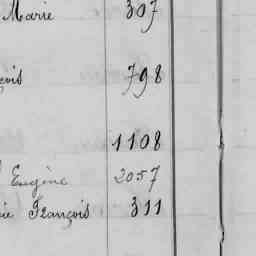 Marie 307
çois 798
1108
Eugène 2057
ie François 311